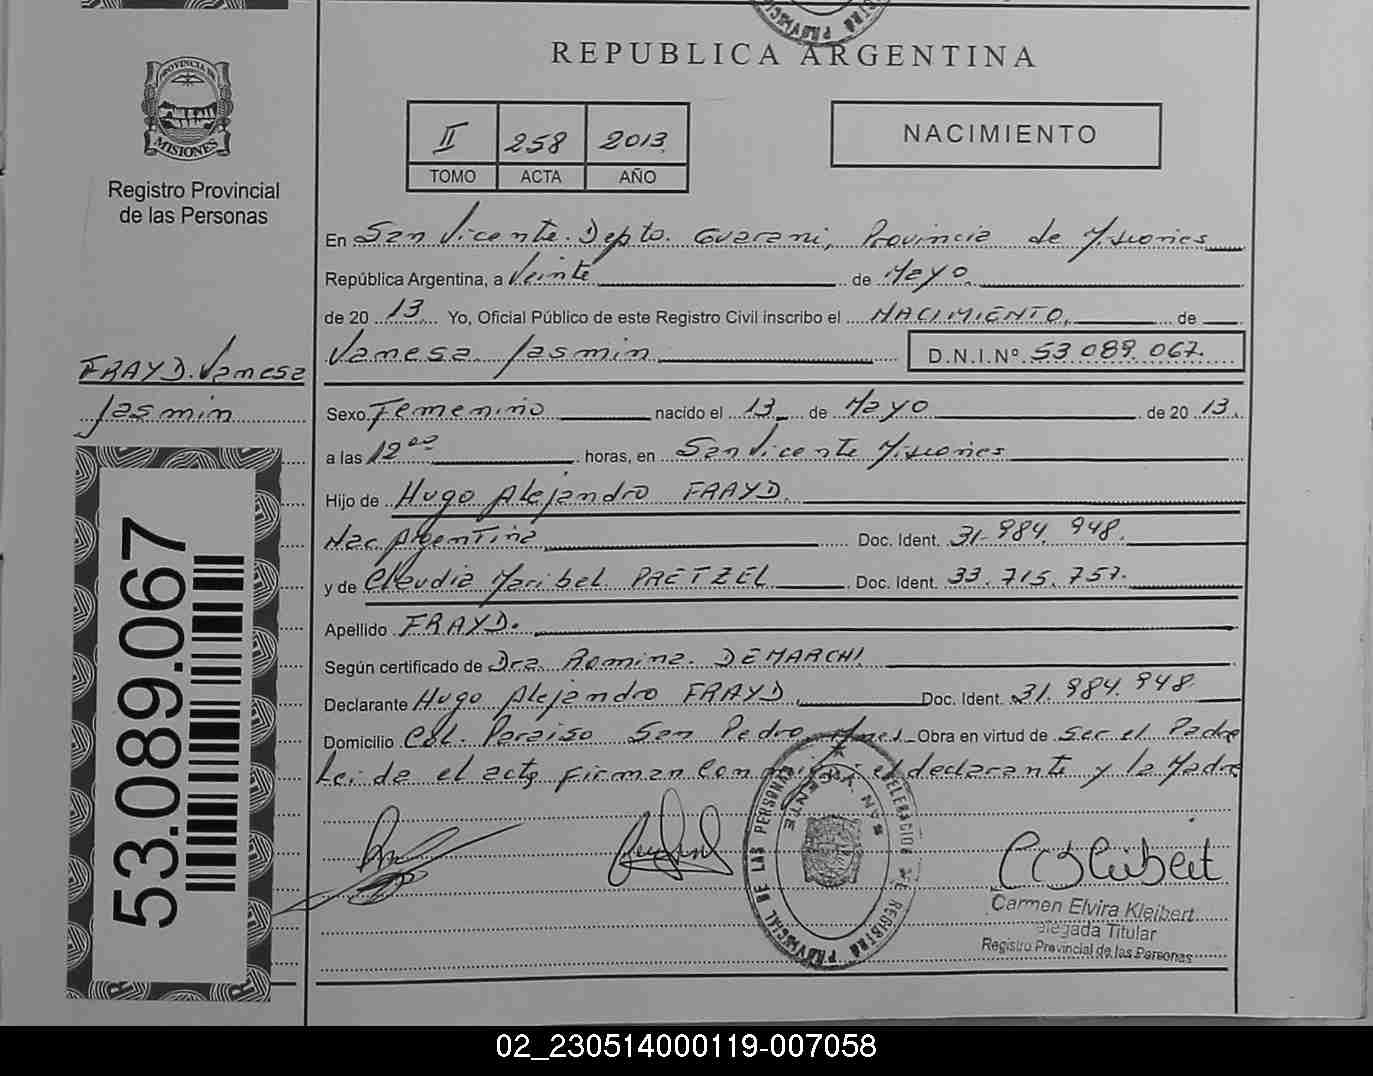 REPUBLICA ARGENTINA
PROVINCIA DE
MISIONES
Registro Provincial
de las Personas
II 258 2013
TOMO ACTA AÑO
NACIMIENTO
En San Vicente. Depto. Guarani, Provincia de Misiones
República Argentina, a Veinte de Mayo
de 20 13. Yo, Oficial Público de este Registro Civil inscribo el NACIMIENTO, de
Vanesa Jasmin D.N.I.Nº 53 089 067.
FRAYD. Vanesa
Jasmin
Sexo Femenino nacido el 13 de Mayo de 20 13.
a las 12 00 horas, en San Vicente Misiones
Hijo de Hugo Alejandro FRAYD.
Nac. Argentina Doc. Ident. 31.984.948.
y de Claudia Maribel PRETZEL Doc. Ident. 33.715.757.
Apellido FRAYD.
Según certificado de Dra Romina. DEMARCHI
Declarante Hugo Alejandro FRAYD, Doc. Ident. 31.984.948
Domicilio Col. Paraiso San Pedro Mnes Obra en virtud de ser el Padre
Leida el acta firman conmigo el declarante y la Madre
53.089.067
SAN VICENTE
REGISTRO PROVINCIAL DE LAS PERSONAS
Carmen Elvira Kleibert
Delegada Titular
Registro Provincial de las Personas
02_230514000119-007058